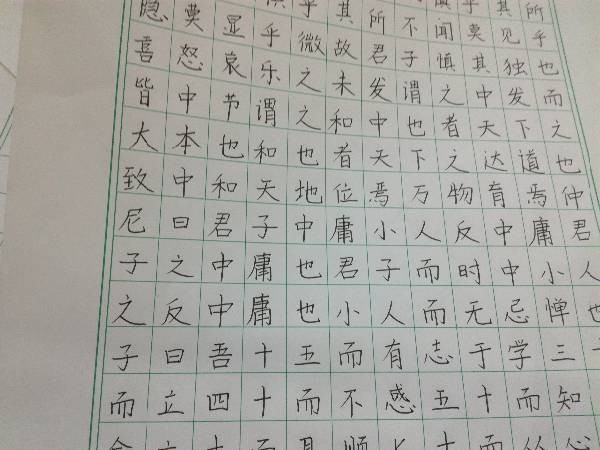 慎乎其所
乎其所不闻莫见乎
隐莫显乎微故君子慎其独也
喜怒哀乐之未发谓之中发而
皆中节谓之和中也者天下之
大本也和也者天下之达道也
致中和天地位焉万物育焉仲
尼曰君子中庸小人反中庸君
子之中庸也君子而时中小人
之反中庸也小人而无忌惮也
子曰吾十五而有志于学三
而立四十而不感五十而知
十而耳顺七十而从心